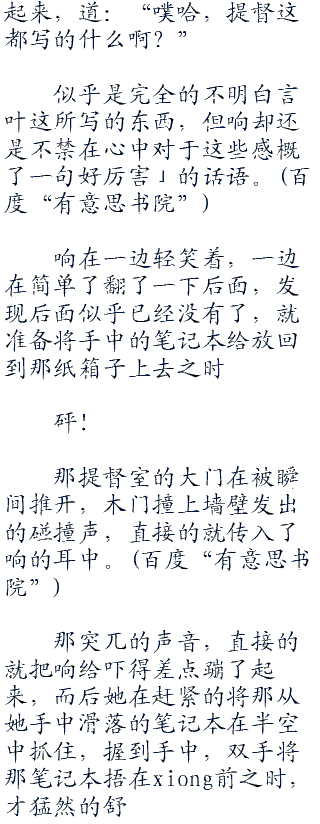 起来，道：“噗哈，提督这
都写的什么啊？”
似乎是完全的不明白言
叶这所写的东西，但响却还
是不禁在心中对于这些感概
了一句好厉害」的话语。(百
度“有意思书院”)
响在一边轻笑着，一边
在简单了翻了一下后面，发
现后面似乎已经没有了，就
准备将手中的笔记本给放回
到那纸箱子上去之时
砰！
那提督室的大门在被瞬
间推开，木门撞上墙壁发出
的碰撞声，直接的就传入了
响的耳中。(百度“有意思书
院”)
那突兀的声音，直接的
就把响给吓得差点蹦了起
来，而后她在赶紧的将那从
她手中滑落的笔记本在半空
中抓住，握到手中，双手将
那笔记本捂在xiong前之时，
才猛然的舒